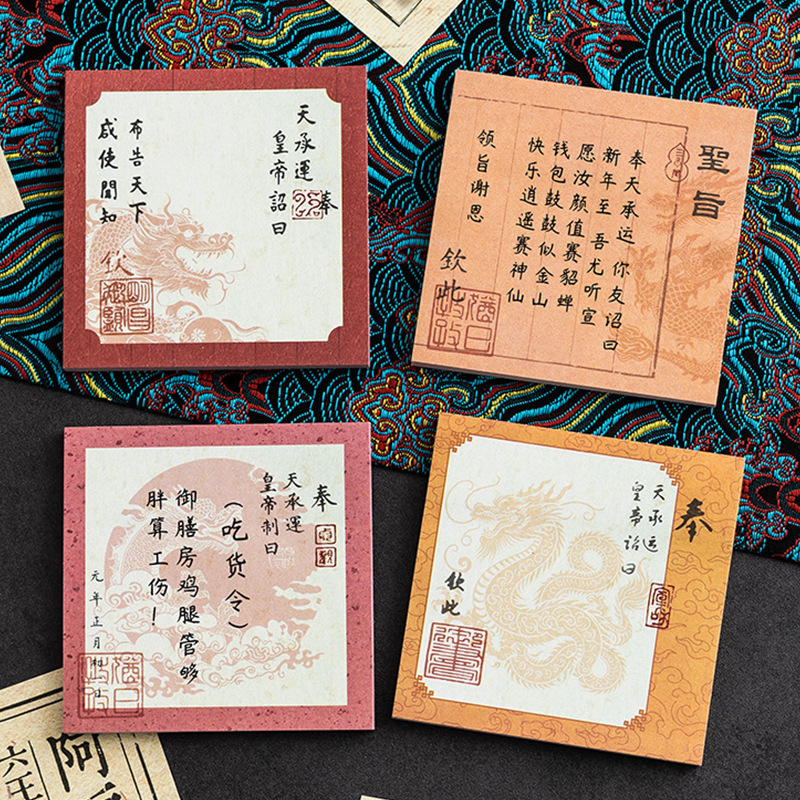 奉
天承運
皇帝詔曰
布告天下
咸使聞知
欽
聖旨
奉天承运 你友诏曰
新年至 吾尤听宣
愿汝颜值赛貂蝉
钱包鼓鼓似金山
快乐逍遥赛神仙
领旨谢恩
钦此
奉
天承運
皇帝制曰
（吃货令）
御膳房鸡腿管够
胖算工伤！
元年正月初一日
奉
天承运
皇帝詔曰
钦此
六年
阿